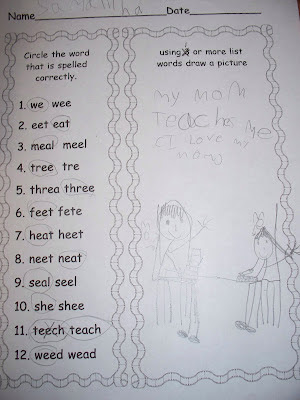 Samantha
Name Date
Circle the word
that is spelled
correctly.
1. we wee
2. eet eat
3. meal meel
4. tree tre
5. threa three
6. feet fete
7. heat heet
8. neet neat
9. seal seel
10. she shee
11. teech teach
12. weed wead
using 3 or more list
words draw a picture
my mom
Teaches me
I Love my